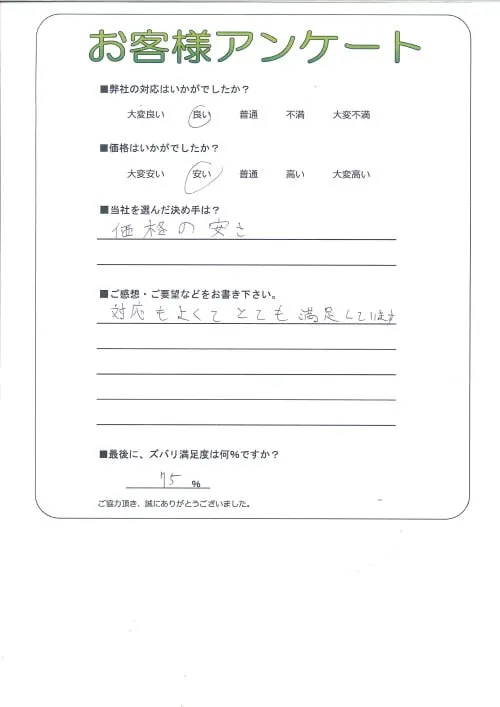 お客様アンケート
■弊社の対応はいかがでしたか？
大変良い 良い 普通 不満 大変不満
■価格はいかがでしたか？
大変安い 安い 普通 高い 大変高い
■当社を選んだ決め手は？
価格の安さ
■ご感想・ご要望などをお書き下さい。
対応もよくてとても満足しています
■最後に、ズバリ満足度は何％ですか？
75 ％
ご協力頂き、誠にありがとうございました。